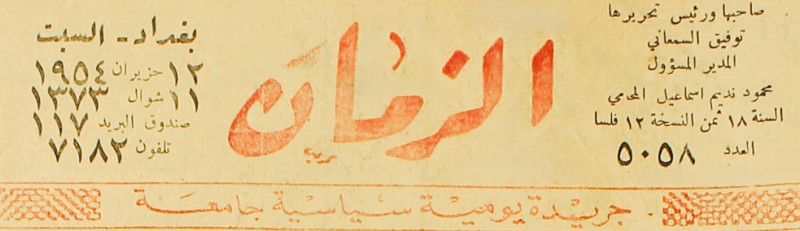 صاحبها ورئيس تحريرها
توفيق السمعاني
المدير المسؤول
محمود نديم اسماعيل المحامي
السنة ١٨ ثمن النسخة ١٢ فلسا
العدد ٥٠٥٨
الزمان
بغداد - السبت
١٢ حزيران ١٩٥٤
١١ شوال ١٣٧٣
صندوق البريد ١١٧
تلفون ٧١٨٢
جريدة يومية سياسية جامعة